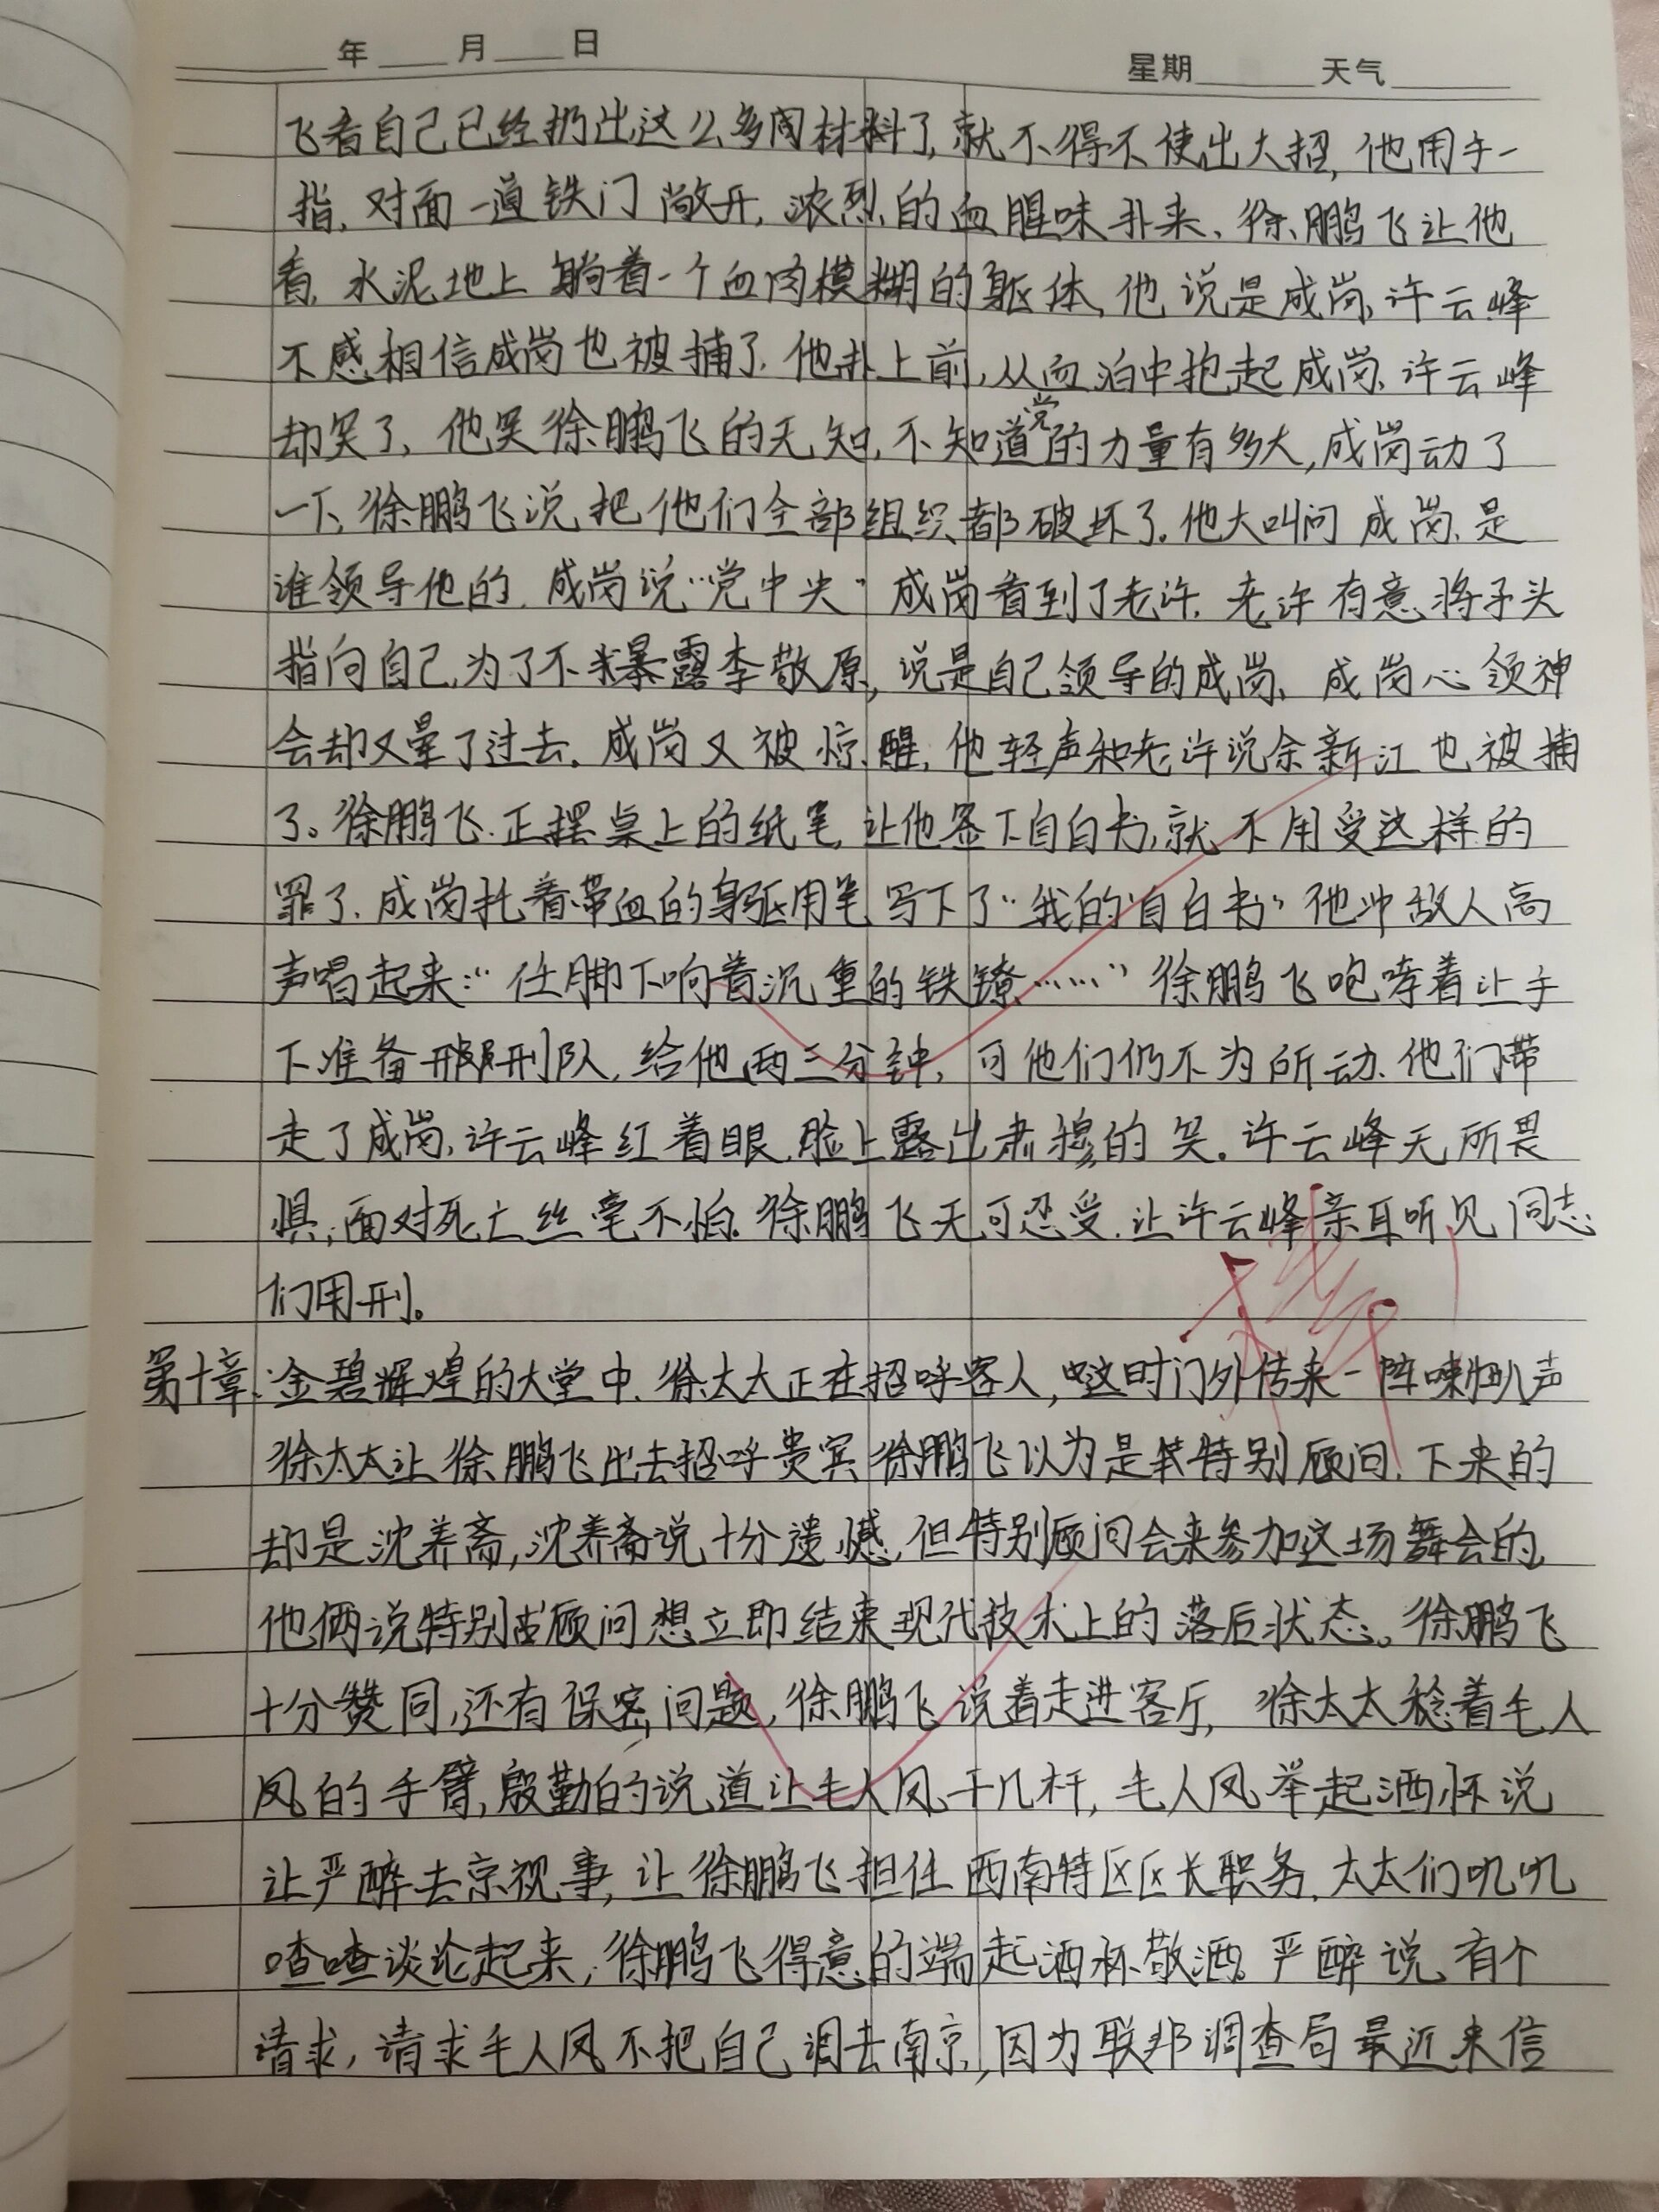 年 月 日 星期 天气
飞看自己已经扔出这么多闲材料了,就不得不使出大招,他用手一
指,对面一道铁门敞开,浓烈的血腥味扑来、徐鹏飞让他
看,水泥地上躺着一个血肉模糊的躯体,他说是成岗,许云峰
不感相信成岗也被捕了.他扑上前,从血泊中抱起成岗、许云峰
却笑了,他笑徐鹏飞的无知,不知道党的力量有多大,成岗动了
一下,徐鹏飞说把他们全部组织都破坏了.他大叫问成岗,是
谁领导他的.成岗说“党中央”成岗看到了老许.老许有意将矛头
指向自己,为了不暴露李敬原,说是自己领导的成岗、成岗心领神
会却又晕了过去.成岗又被惊醒,他轻声和老许说余新江也被捕
了。徐鹏飞.正摆桌上的纸笔,让他签下自白书,就不用受这样的
罪了.成岗托着带血的身驱用笔写下了“我的‘自白书”他冲敌人高
声唱起来:“任脚下响着沉重的铁镣……”徐鹏飞咆哮着让手
下准备刑队,给他两三分钟,可他们仍不为所动.他们带
走了成岗,许云峰红着眼.脸上露出肃穆的笑.许云峰无所畏
惧,面对死亡丝毫不怕.徐鹏飞无可忍受.让许云峰亲耳听见同志
们用刑。
第十章:金碧辉煌的大堂中.徐太太正在招呼客人,这时门外传来一阵喇叭声
徐太太让徐鹏飞出去招呼贵宾徐鹏飞以为是特别顾问.下来的
却是沈养斋,沈养斋说十分遗憾,但特别顾问会来参加这场舞会的.
他俩说特别顾问想立即结束现代技术上的落后状态。徐鹏飞
十分赞同,还有保密问题,徐鹏飞说着走进客厅,徐太太稔着毛人
凤的手臂,殷勤的说道让毛人凤干几杆,毛人凤举起洒怀说
让严醉去京视事,让徐鹏飞担任西南特区区长职务.太太们叽叽
喳喳谈论起来,徐鹏飞得意的端起洒杯敬洒。严醉说有个
请求,请求毛人凤不把自己调去南京,因为联邦调查局最近来信